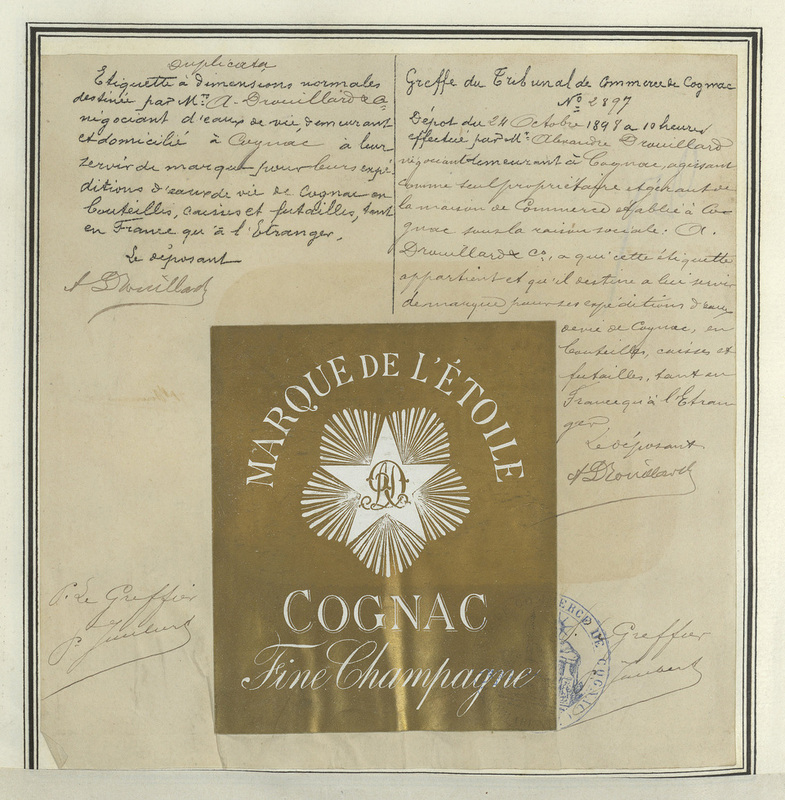 Duplicata
Etiquette à dimensions normales
destinée par Mr. A. Drouillard & Co
négociant d'eaux de vie, demeurant
et domicilié à Cognac, à leur
servir de marque pour leurs expé-
ditions d'eaux de vie de Cognac en
bouteilles, caisses et futailles, tant
en France qu'à l'Etranger.
Le déposant
A Drouillard
Greffe du Tribunal de Commerce de Cognac
No 2897
Dépot du 24 Octobre 1898 a 10 heures
effectué par Mr. Alexandre Drouillard
négociant demeurant à Cognac, agissant
comme seul propriétaire et gérant de
la maison de Commerce établie à Co-
gnac sous la raison sociale: A.
Drouillard & Co, a qui cette étiquette
appartient et qu'il destine a lui servir
de marque pour ses expéditions d'eaux
de vie de Cognac, en
bouteilles, caisses et
futailles, tant en
France qu'à l'Etran
ger,
Le déposant
A Drouillard
MARQUE DE L'ÉTOILE
COGNAC
Fine Champagne
P. Le Greffier
Greffier
MERCE DE COGNAC